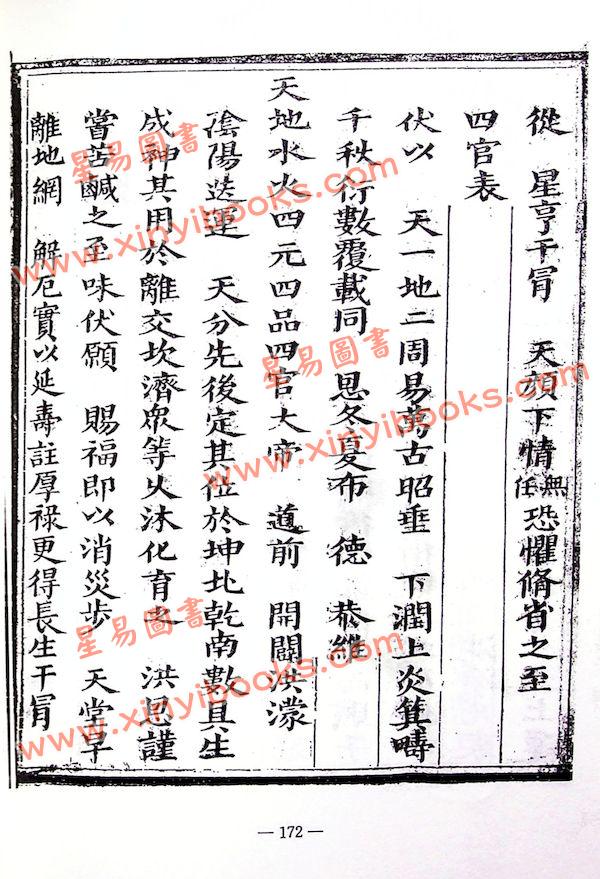 從　星亨干冐　天顔下情無任恐懼脩省之至
四官表
伏以　天一地二周易萬古昭垂　下潤上炎箕疇
千秋衍數覆載同　恩冬夏布　德　恭維
天地水火四元四品四官大帝　道前　開闢洪濛
陰陽迭運　天分先後定其位於坤北乾南數具生
成神其用於離交坎濟衆等久沐化育之　洪恩謹
嘗苦鹹之至味伏願　賜福即以消災步　天堂早
離地網　解厄實以延壽註厚祿更得長生干冐
— 172 —
星易圖書
www.xinyibooks.com
星易圖書
www.xinyibooks.com
星易圖書
www.xinyibooks.com